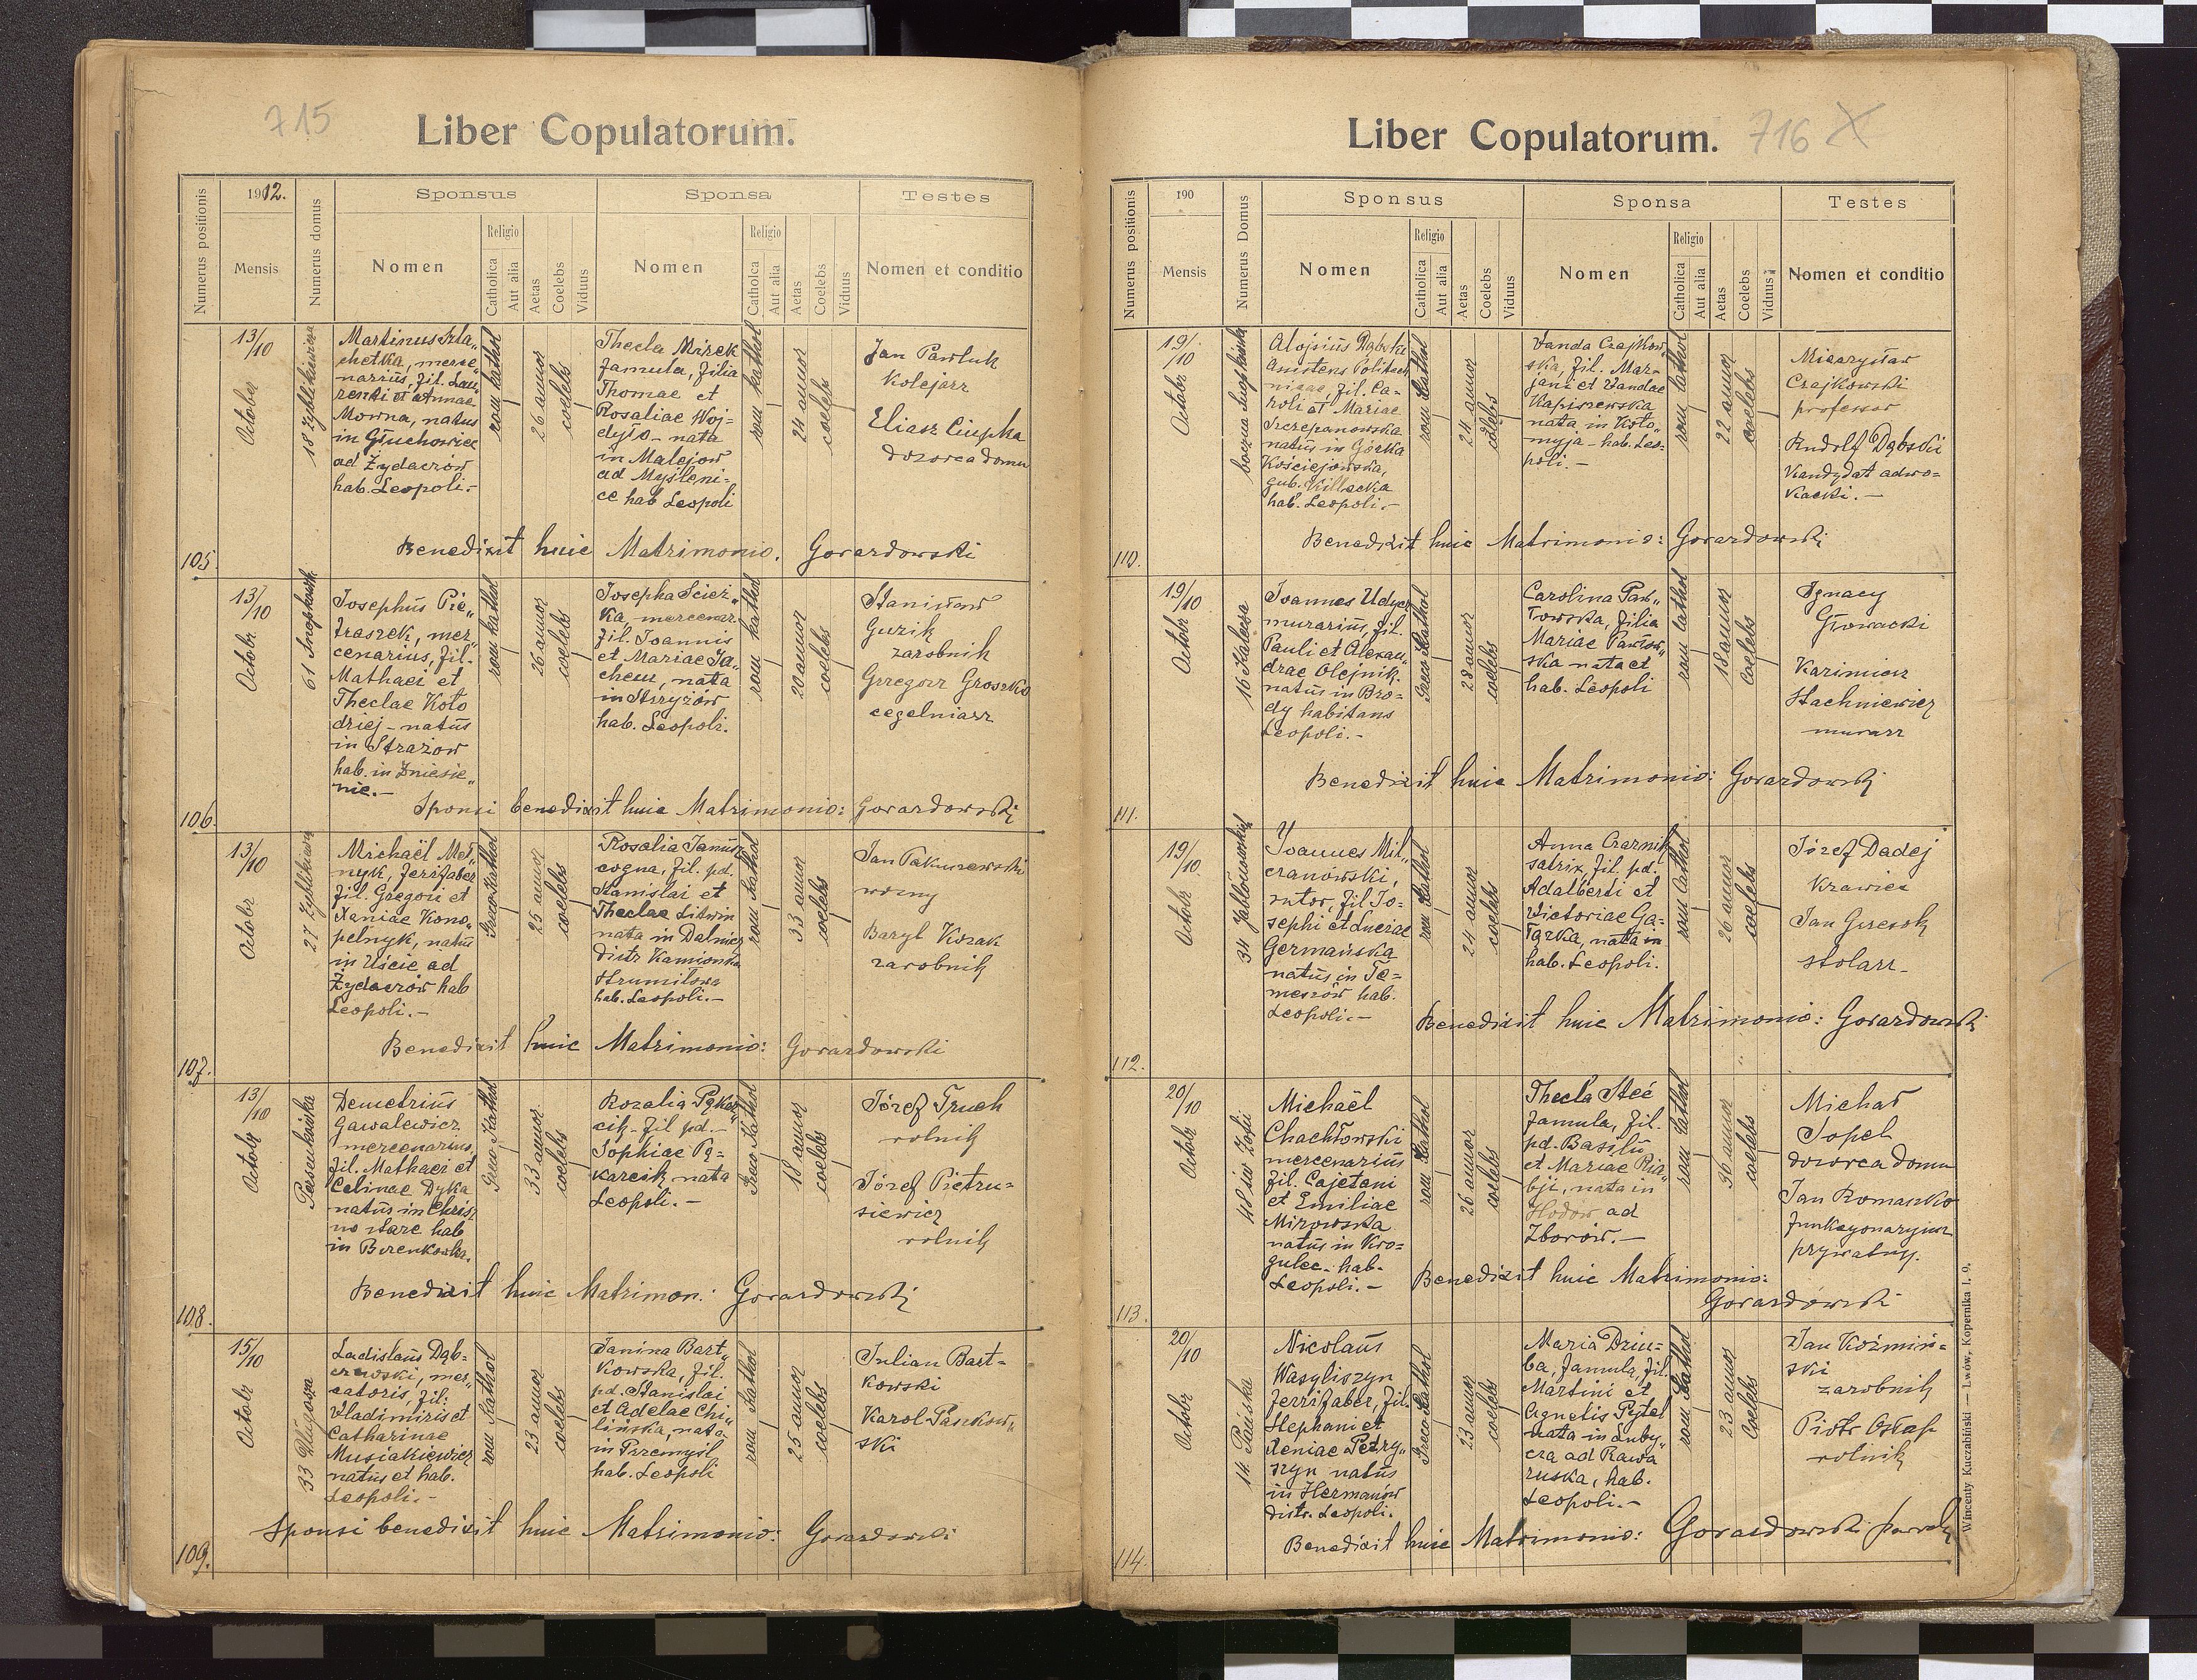 715
Liber Copulatorum.
Numerus positionis
1912.
Mensis
Numerus domus
Sponsus
Nomen
Religio
Catholica
Aut alia
Aetas
Coelebs
Viduus
Sponsa
Nomen
Religio
Catholica
Aut alia
Aetas
Coelebs
Viduus
Testes
Nomen et conditio
105.
13/10
October
18 Zyblikiewicza
Martinus Szla„
chetka, merce„
narius, fil. Lau„
renti et Annae
Mowna, natus
in Głuchowiec
ad Żydaczów
hab. Leopoli.-
rom kathol
26 annor
coelebs
Thecla Mirek
famula, filia
Thomae et
Rosaliae Woj-
dyło - nata
in Malejow
ad Myśleni-
ce hab Leopoli
rom kathol
24 annor
coelebs
Jan Pawluk
Kolejarz
Eliasz Ciupka
dozorca domu
Benedixit huic Matrimonio. Gorazdowski
106.
13/10
Octobr
61 Snopkowsk.
Josephus Pie„
traszek, mer„
cenarius, fil.
Mathaei et
Theclae Koło
dziej - natus
in Strażow
hab. in Zniesie„
nie.-
rom kathol
26 annor
coelebs
Josepha Ścież„
ka, mercenar.
fil. Joannis
et Mariae Ja„
chem, nata
in Strzyżów
hab. Leopoli.
rom kathol
20 annor
coelebs
Stanisław
Guzik
zarobnik
Grzegorz Groszko
cegelniarz
Sponsi benedixit huic Matrimonio: Gorazdowski
107.
13/10
Octobr
27 Zyblikiewicz
Michaël Mel„
nyk, ferrifaber
fil. Gregorii et
Xaniae Kono„
pelnyk, natus
in Uście ad
Żydaczów hab
Leopoli.-
Greco Kathol
25 annor
coelebs
Rosalia Janus„
cogna, fil. pd.
Stanislai et
Theclae Litwin
nata in Dalnicz
distr Kamionka
Strumiłowa
hab. Leopoli.-
rom Kathol
33 annor
coelebs
Jan Pakuszewski
woźny
Bazyl Kozak
zarobnik
Benedixit huic Matrimonio: Gorazdowski
108.
13/10
Octobr
Persenkówka
Demetrius
Gawalewicz
mercenarius,
fil. Mathaei et
Celinae Dyka
natus in Chris
no stare hab
in Berenkowka.
Greco Kathol
33 annor
coelebs
Rozalia Pąkar„
cik - fil pd.-
Sophiae Pą-
karcik, nata
Leopoli.-
Greco Kathol
18 annor
coelebs
Józef Truch
rolnik
Józef Pietru-
siewicz
rolnik
Benedixit huic Matrimon: Gorazdowski
109.
15/10
Octobr
33 Długosza
Ladislaus Dąb-
rowski, mer„
catoris, fil:
Vladimiris et
Catharinae
Musiakiewicz
natus et hab.
Leopoli.-
rom Kathol
23 annor
coelebs
Janina Bart„
kowska, fil.
pd. Stanislai
et Adelae Chi„
lińska, nata
in Przemyśl
hab. Leopoli
rom Kathol
25 annor
coelebs
Julian Bart-
kowski
Karol Paszkow„
ski
Sponsi benedixit huic Matrimonio: Gorazdowski
716 X
Liber Copulatorum.
Numerus positionis
190
Mensis
Numerus Domus
Sponsus
Nomen
Religio
Catholica
Aut alia
Aetas
Coelebs
Viduus
Sponsa
Nomen
Religio
Catholica
Aut alia
Aetas
Coelebs
Viduus
Testes
Nomen et conditio
110.
19/10
Octobr
boczna Snopkowska
Alojsius Dąbski
Assistens Politech
nicae, fil. Ca-
roli et Mariae
Szczepanowska
natus in Górka
Kościejowska,
gub. Killecka
hab. Leopoli.-
rom Kathol
24 annor
coelebs
Vanda Czajkow„
ska, fil. Mar-
jani et Vandae
Kapiszewska
nata in Koło-
myja - hab. Leo-
poli.-
rom Cathol
22 annor
coelebs
Mieczysław
Czajkowski
professor
Rudolf Dąbski
kandydat adwo-
kacki.-
Benedixit huic Matrimonio: Gorazdowski
111.
19/10
Octobr
16 Kalecza
Joannes Udycz
murarius, fil.
Pauli et Alexan„
drae Olejnik.
natus in Bro-
dy habitans
Leopoli.-
Greco Kathol
28 annor
coelebs
Carolina Paw„
łowska, filia
Mariae Pawłow„
ska nata et
hab. Leopoli
rom Cathol
18 annor
Coelebs
Ignacy
Głowacki
Kazimierz
Stachniewicz
murarz
Benedixit huic Matrimonio: Gorazdowski
112.
19/10.
Octobr
34 Jabłonowskich
Joannes Mil„
czanowski,
sutor, fil Jo-
sephi et Luciae
Germańska
natus in Te-
meszów hab.
Leopoli.-
rom Kathol
24 annor
coelebs
Anna Czarnik
satrix, fil. pd.
Adalberti et
Victoriae Ga-
łązka, nata in
hab. Leopoli.
rom Cathol
26 annor
coelebs
Józef Dadej
Krawiec
Jan Grzesik
stolarz-
Benedixit huic Matrimonio: Gorazdowski
113.
20/10
Octobr
48 św Zofii
Michaël
Chachłowski
mercenarius
fil. Cajetani
et Emiliae
Mirowska
natus in Kro-
gulec. hab.
Leopoli.-
rom Kathol
26 annor
coelebs
Thecla Steć
famula, fil.
pd. Basilii
et Mariae Ria„
bji, nata in
Hodow ad
Zborów.-
rom Cathol
36 annor
coelebs
Michał
Sopel
dozorca domu
Jan Romanko
funkcyonaryusz
prywatny.
Benedixit huic Matrimonio:
Gorazdowski
114.
20/10
Octobr
14. Pańska
Nicolaus
Wasyliszyn
ferrifaber, fil.
Stephani et
Xeniae Petry„
szyn natus
in Hermanów
distr. Leopoli.
Greco Cathol
23 annor
coelebs
Maria Dziu-
ba, famula, fil.
Martini et
Agnetis Pytel
nata in Luby„
cza ad Rawa
ruska, hab.
Leopoli.-
rom Kathol
23 annor
Coelebs
Jan Koźmiń-
ski
zarobnik
Piotr Ostap
rolnik
Benedixit huic Matrimonio: Gorazdowski
Wincenty Kuczabiński — Lwów, Kopernika l. 9.